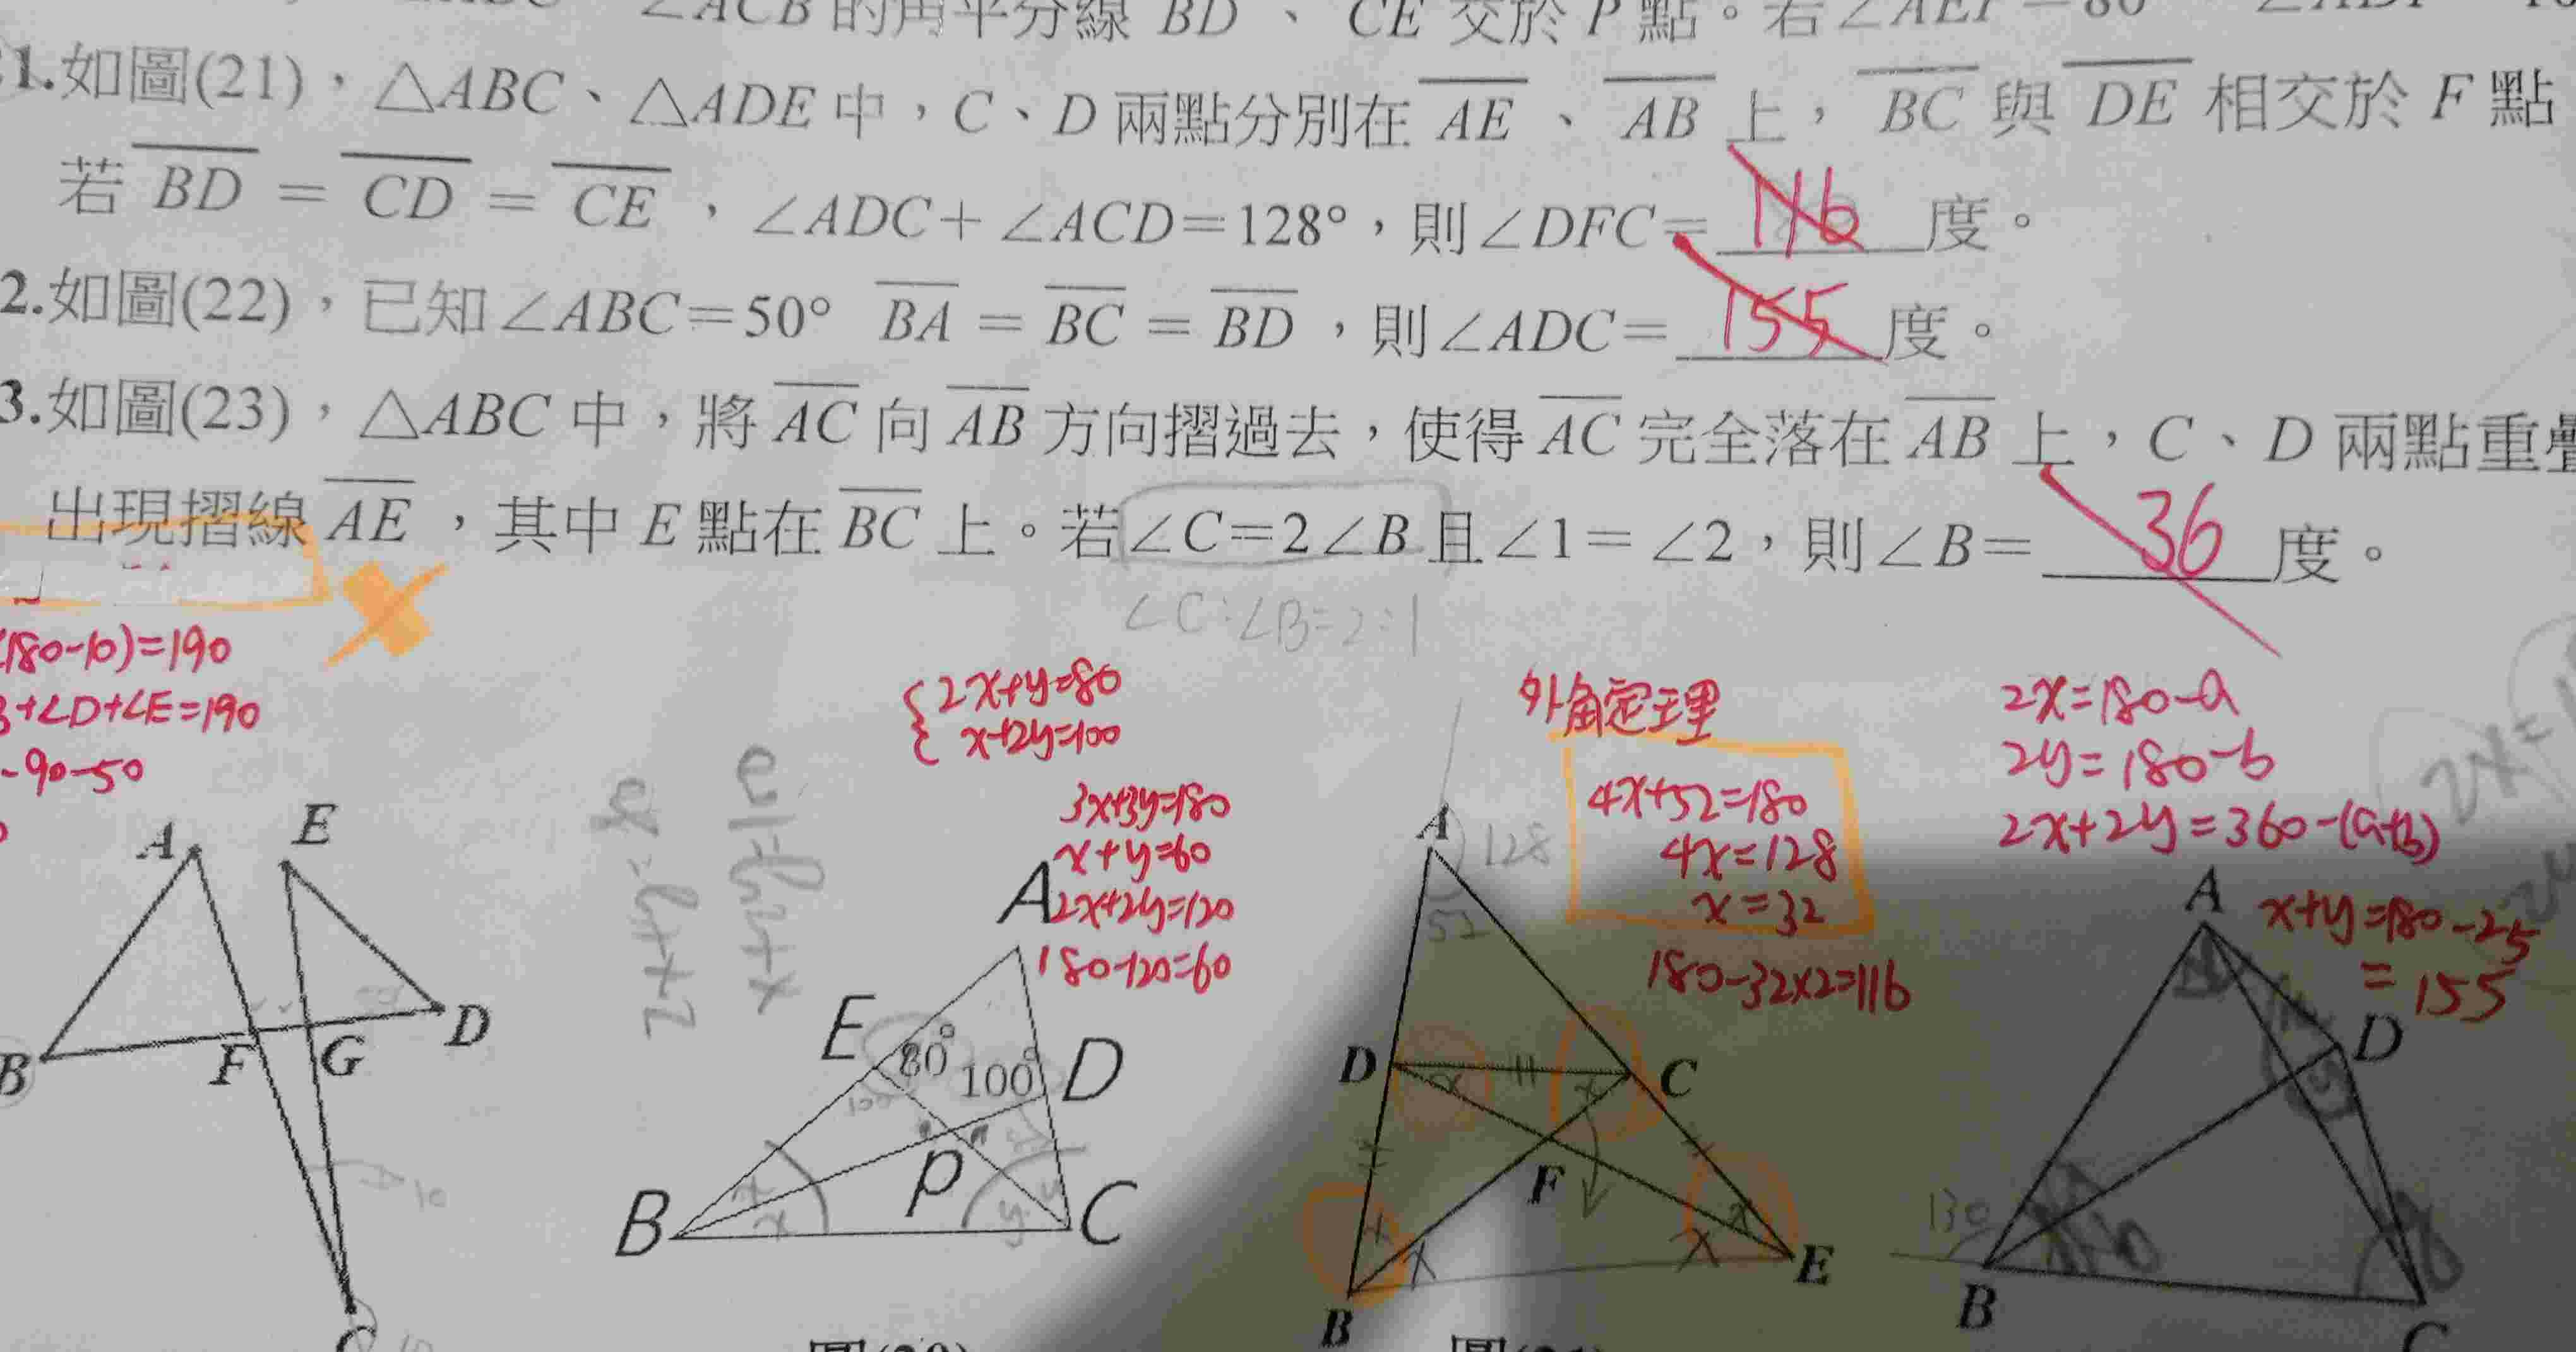 ∠ACB 的角平分線 BD 、 CE 交於 P 點。若∠AEP=80
1.如圖(21),△ABC、△ADE 中,C、D 兩點分別在 AE 、 AB 上, BC 與 DE 相交於 F 點
若 BD = CD = CE ,∠ADC+∠ACD=128°,則∠DFC= 116 度。
2.如圖(22),已知∠ABC=50° BA = BC = BD ,則∠ADC= 155 度。
3.如圖(23),△ABC 中,將 AC 向 AB 方向摺過去,使得 AC 完全落在 AB 上,C、D 兩點重疊
出現摺線 AE ,其中 E 點在 BC 上。若∠C=2∠B 且∠1=∠2,則∠B= 36 度。
∠C:∠B=2:1
(180-10)=190
+∠D+∠E=190
-90-50
A
E
B
F
G
D
C
{2x+y=80
x+2y=100
3x+3y=180
x+y=60
2x+2y=120
180-120=60
A
E
80°
100°
D
100
P
x
x
y
B
C
外角定理
4x+52=180
4x=128
x=32
180-32×2=116
A
128
52
D
x
x
C
F
x
x
x
x
B
E
2x=180-a
2y=180-b
2x+2y=360-(a+b)
x+y=180-25
=155
A
D
130
B
C